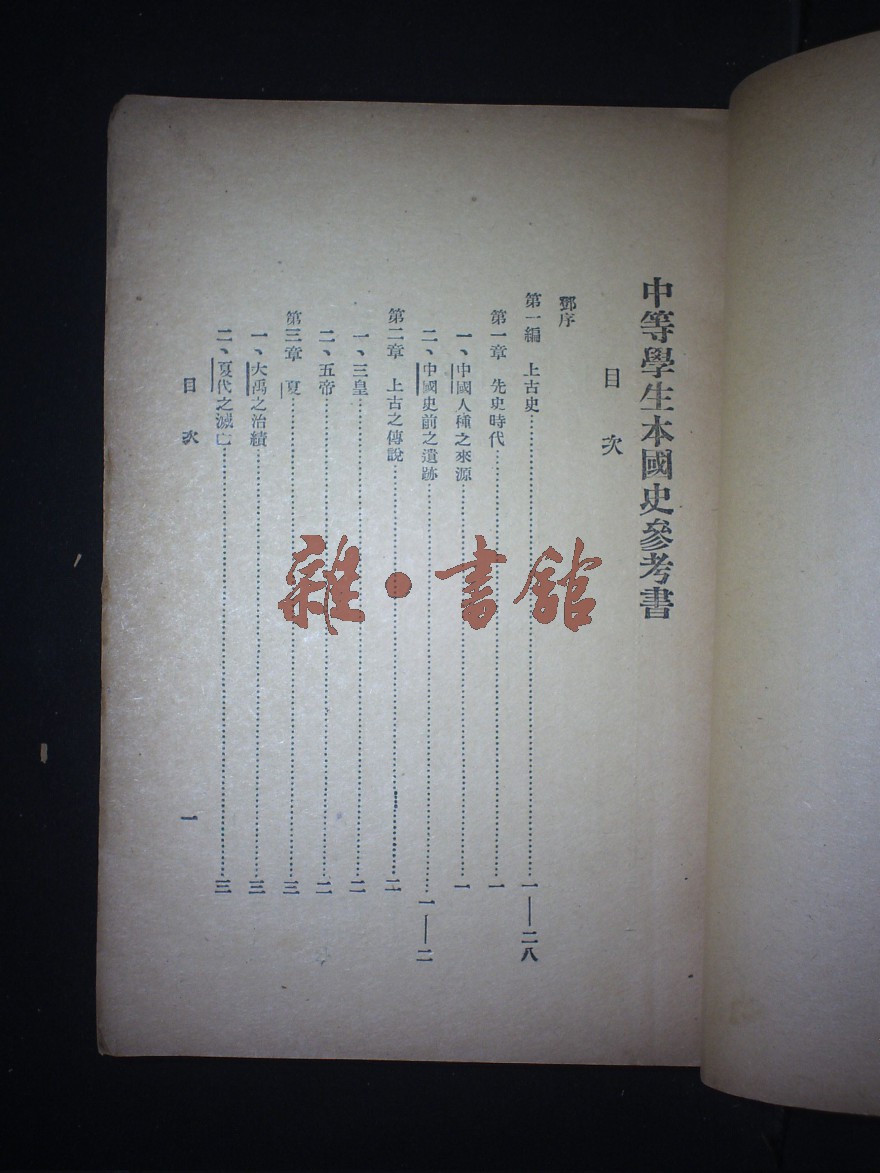 中等學生本國史參考書
目次
鄧序
第一編 上古史………一——二八
第一章 先史時代………一
一、中國人種之來源………一
二、中國史前之遺跡………一——二
第二章 上古之傳說………二
一、三皇………二
二、五帝………二
第三章 夏………三
一、大禹之治績………三
二、夏代之滅亡………三
目次 一
雜·書館